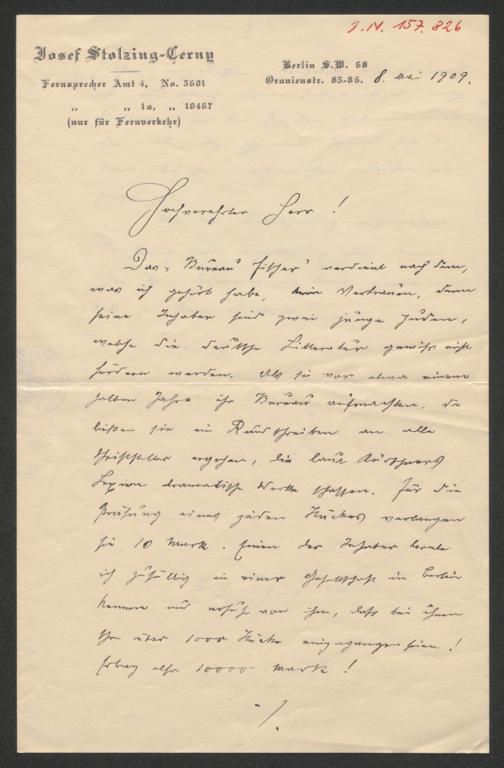 J.N. 157.826
Josef Stolzing-Cerny
Fernsprecher Amt 4, No. 3601
„ „ 1a, „ 10467
(nur für Fernverkehr)
Berlin S.W. 68
Oranienstr. 83-86. 8. Mai 1909.
Hochverehrter Herr!
Das „Bureau Fischer" verdient nach dem,
was ich gehört habe, kein Vertrauen, denn
seine Inhaber sind zwei junge Juden,
welche die deutsche Litteratur gewiss nicht
fördern werden. Als sie vor etwa einem
halben Jahre ihr Bureau aufmachten, da
ließen sie ein Rundschreiben an alle
Schriftsteller ergehen, die laut Kürschners
Lexikon dramatische Werke schaffen. Für die
Prüfung eines jeden Stückes verlangen
sie 10 Mark. Einen der Inhaber lernte
ich zufällig in einer Gesellschaft in Berlin
kennen und erfuhr von ihm, daß bei ihnen
über 1000 Stücke eingegangen seien!
Ertrag also 10000 Mark!
./.